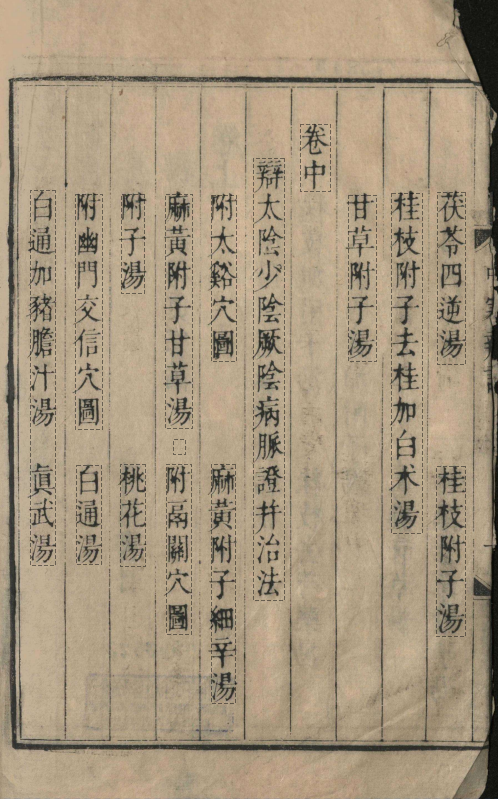 茯苓四逆湯 桂枝附子湯
桂枝附子去桂加白朮湯
甘草附子湯
卷中
辯太陰少陰厥陰病脈證幷治法
附太谿穴圖 麻黃附子細辛湯
麻黃附子甘草湯 附鬲關穴圖
附子湯 桃花湯
附幽門交信穴圖 白通湯
白通加豬膽汁湯 眞武湯